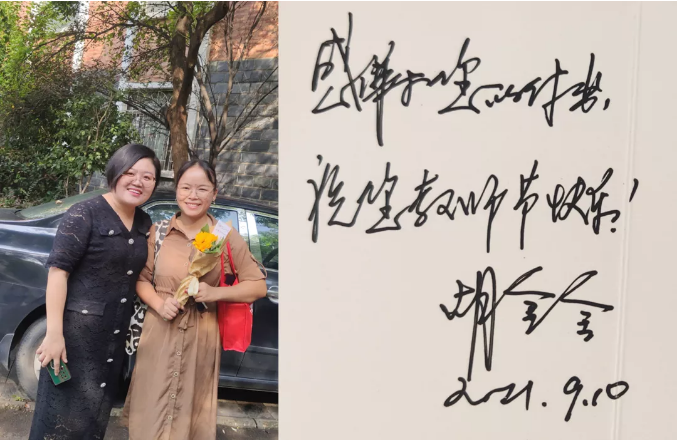 感谢您的付出，
祝您教师节快乐！
胡
2021.9.10